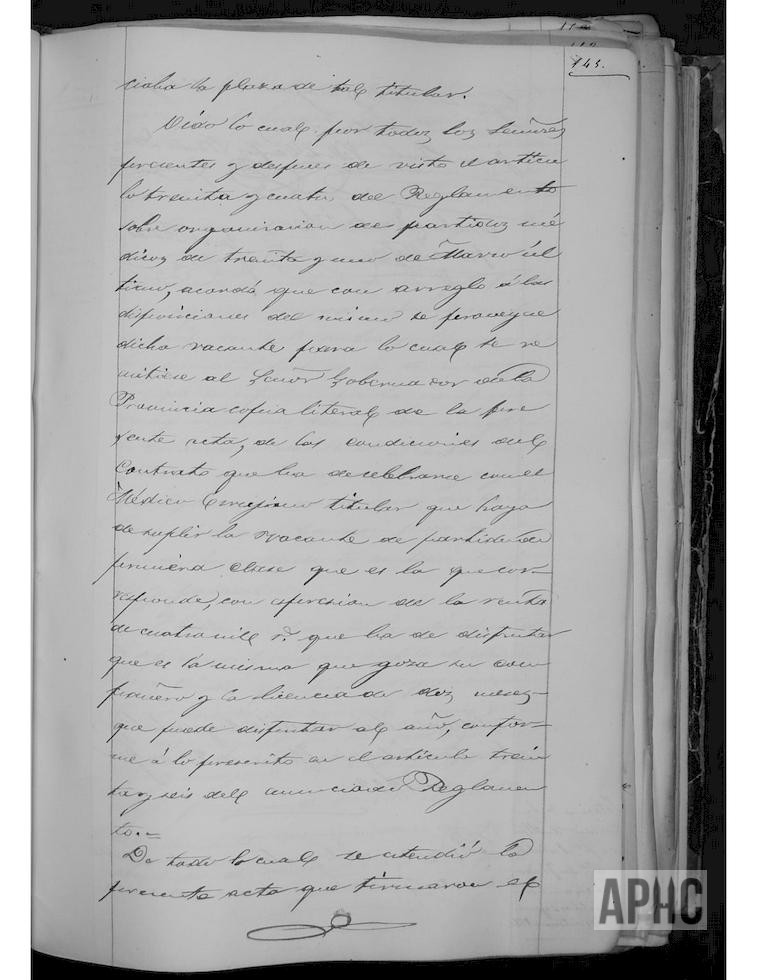 145.
ciaba la plaza de tal titular.
Oido lo cual por todos los Señores
presentes y despues de visto el articu
lo treinta y cuatro del Reglamento
sobre organizacion de partidos mé
dicos de treinta y uno de Marzo úl
timo, acordó que con arreglo á las
disposiciones del mismo se provéyese
dicha vacante para lo cual se re
mitiese al Señor Gobernador de la
Provincia copia literal de la pre
sente acta, de las condiciones del
Contrato que ha de celebrarse con el
Médico Cirujano titular que haya
de suplir la vacante de partido de
primera clase que es la que cor-
responde, con espresion de la renta
de cuatro mil r.s que ha de disfrutar
que es la misma que goza su com
pañero y la licencia de dos meses
que puede disfrutar al año, confor-
me á lo prescrito en el articulo trein
ta y seis del anunciado Reglamen
to.=
De todo lo cual se estendió la
presente acta que firmaron el
APHC